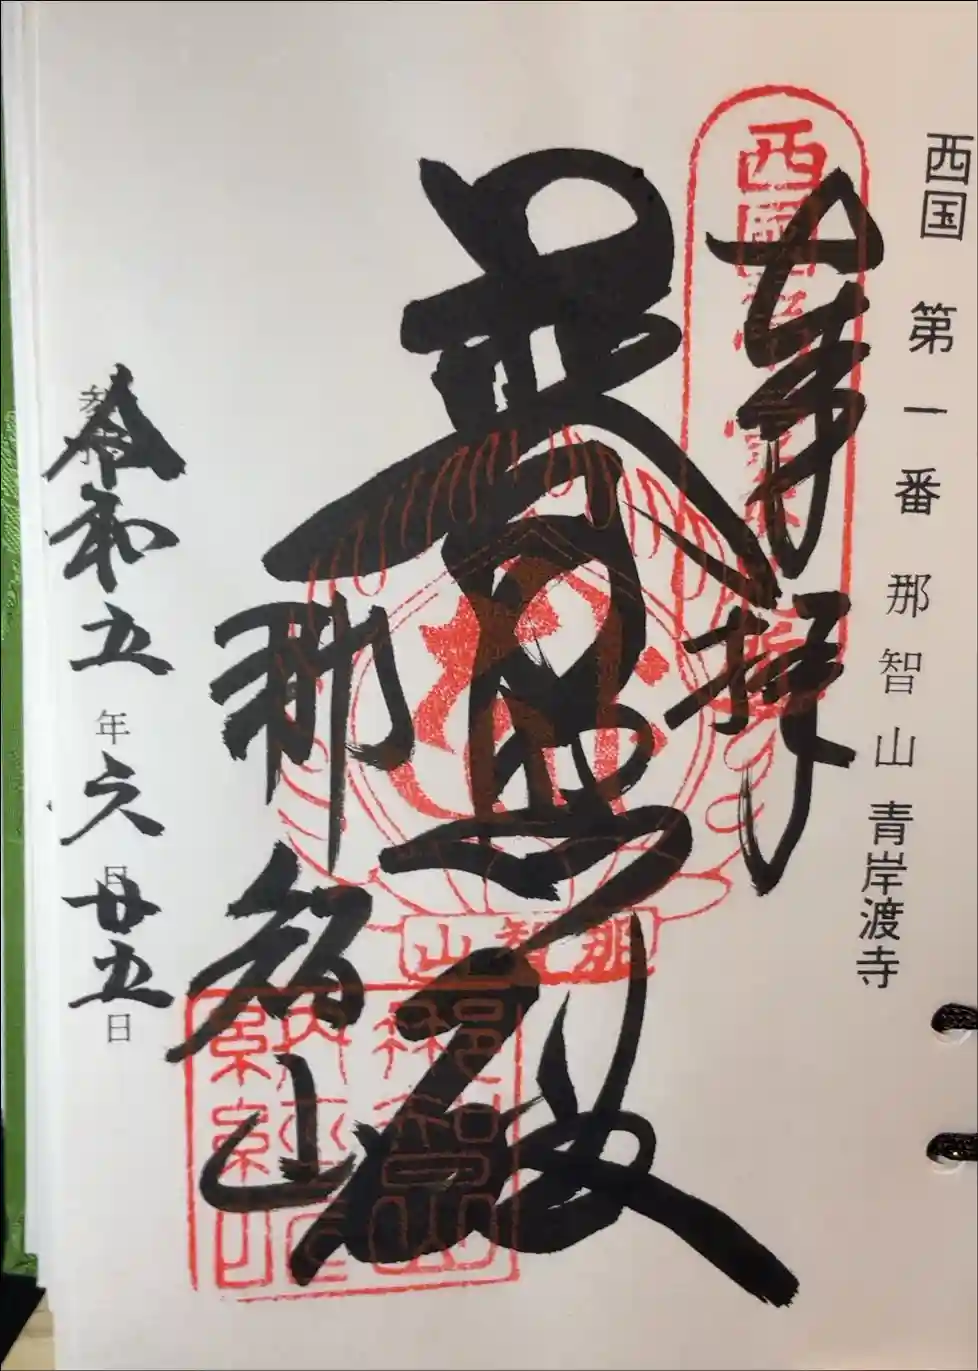 西国 第一番 那智山 青岸渡寺
奉拝
西国第一番
普照殿
那智山
那智山
令和五年六月廿五日